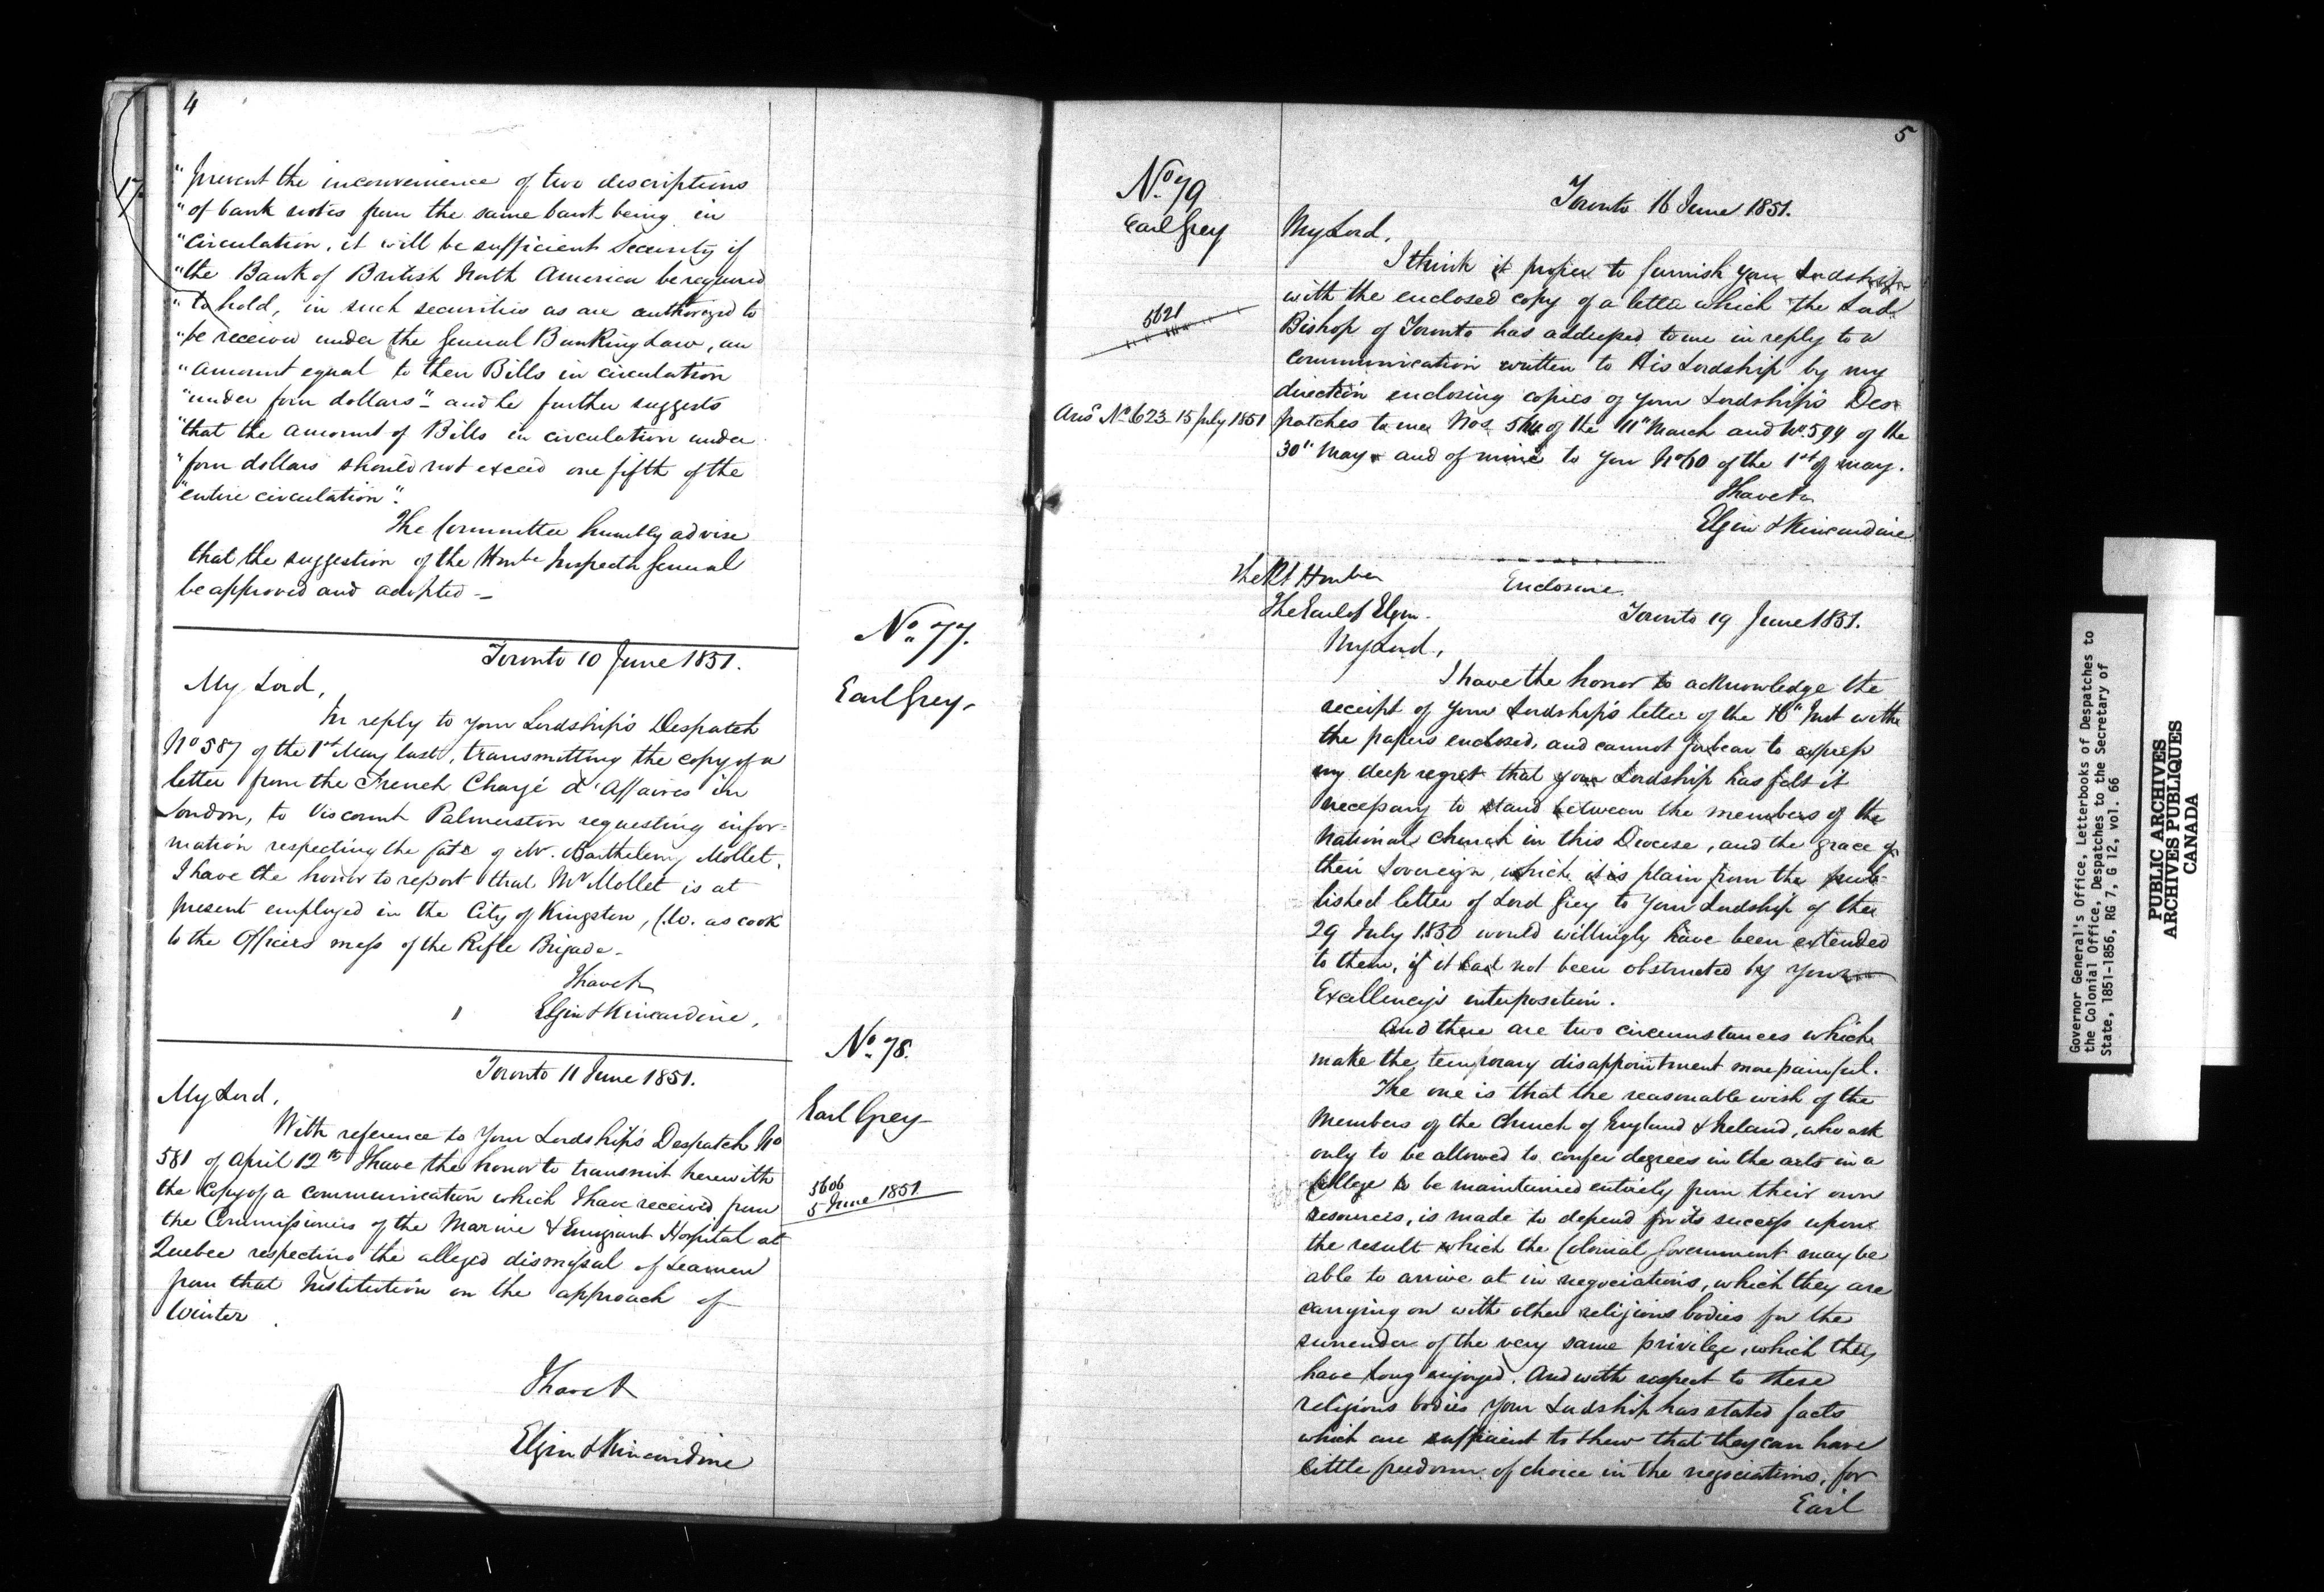 4
17.
" prevent the inconvenience of two descriptions
" of bank notes from the same bank being in
" circulation, it will be sufficient Security if
" the Bank of British North America be required
" to hold, in such securities as are authorized to
" be received under the General Banking Law, an
" amount equal to their Bills in circulation
" under four dollars" - and he further suggests
" that the amount of Bills in circulation under
" four dollars should not exceed one fifth of the
" entire circulation".
The Committee humbly advise
that the suggestion of the Honble Inspector General
be approved and adopted -
No. 77.
Earl Grey.
Toronto 10 June 1851.
My Lord,
In reply to your Lordship's Despatch
No 587 of the 1st May last, transmitting the copy of a
letter from the French Chargé d'Affaires in
London, to Viscount Palmerston requesting infor=
mation respecting the fate of Mr. Barthelemy Mollet,
I have the honor to report that Mr Mollet is at
present employed in the City of Kingston, C.W. as cook
to the Officers mess of the Rifle Brigade -
I have &
Elgin & Kincardine,
No. 78.
Earl Grey
5606
5 June 1851
Toronto 11 June 1851.
My Lord,
With reference to Your Lordship's Despatch No
581 of April 12th I have the honor to transmit herewith
the Copy of a communication which I have received from
the Commissioners of the Marine & Emigrant Hospital at
Quebec respecting the alleged dismissal of Seamen
from that Institution on the approach of
Winter.
I have &
Elgin & Kincardine
5
No. 79
Earl Grey
5621
Ansd No. 623 15 July 1851
Toronto 16 June 1851.
My Lord,
I think it proper to furnish your Lordship
with the enclosed copy of a letter which the Lord
Bishop of Toronto has addressed to me in reply to a
communication written to His Lordship by my
direction enclosing copies of your Lordship's Des-
patches to me Nos of the 11" March and No. 599 of the
30" May and of mine to you No 60 of the 1st of May.
I have &
Elgin & Kincardine
Enclosure.
The Rt Honble
The Earl of Elgin.
Toronto 19 June 1851.
My Lord,
I have the honor to acknowledge the
receipt of your Lordship's letter of the 16" Inst with
the papers enclosed, and cannot forbear to express
my deep regret that your Lordship has felt it
necessary to stand between the members of the
National Church in this Diocese, and the grace of
their Sovereign, which it is plain from the pub-
lished letter of Lord Grey to Your Lordship of the
29 July 1850 would willingly have been extended
to them, if it had not been obstructed by your
Excellency's interposition.
And there are two circumstances which
make the temporary disappointment more painful.
The one is that the reasonable wish of the
Members of the Church of England & Ireland, who ask
only to be allowed to confer degrees in the arts in a
College to be maintained entirely from their own
resources, is made to depend for its success upon
the result which the Colonial Government may be
able to arrive at in negociations, which they are
carrying on with other religious bodies for the
surrender of the very same privilege, which they
have long enjoyed. And with respect to these
religious bodies Your Lordship has stated facts
which are sufficient to shew that they can have
little freedom of choice in the negociations, for
Earl
Governor General's Office, Letterbooks of Despatches to
the Colonial Office, Despatches to the Secretary of
State, 1851-1856, RG 7, G 12, vol. 66
PUBLIC ARCHIVES
ARCHIVES PUBLIQUES
CANADA